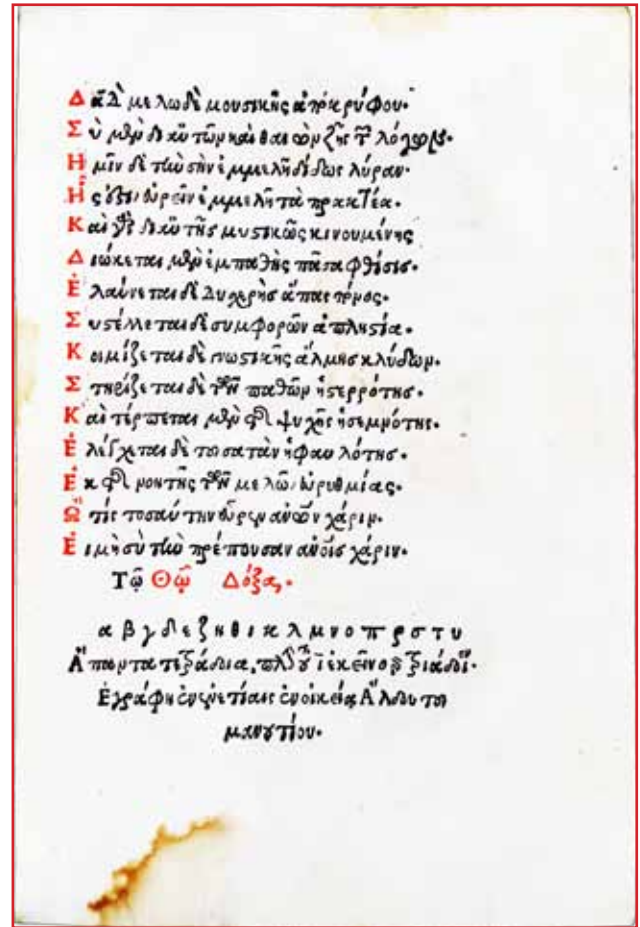 μελωδὲ μουσικῆς ἀποκρύφου.
Σὺ μὲν δι' αὐτῶν καὶ
Ἡμῖν δὲ τὴν σὴν ἐμμελῆ δίδως λύραν.
Ἧς ἐμμελῆ τὰ πρακτέα.
Καὶ γὰρ δι' αὐτῆς μυστικῶς κινουμένης
Διώκεται μὲν ἐμπαθὴς πᾶσα φθίσις.
Ἐλαύνεται δὲ δυσχερὴς ἅπας τόνος.
Συστέλλεται δὲ συμφορῶν ἀπληστία.
Κοιμίζεται δὲ γνωστικῆς ἅλμης κλύδων.
Στηρίζεται δὲ τῶν παθῶν ἡ στερρότης.
Καὶ τέρπεται μὲν τῆς ψυχῆς ἡ σεμνότης.
Ἐλέγχεται δὲ τοῦ σατὰν ἡ φαυλότης.
Ἐκ τῆς τῶν μελῶν εὐρυθμίας.
Ὢ τίς τοσαύτην εὗρεν χάριν.
Εἰ μὴ σὺ τὴν πρέπουσαν αὐτοῖς χάριν.
Τῷ Θῷ Δόξα.
α β γ δ ε ζ η θ ι κ λ μ ν ο π ρ σ τ υ
Ἅπαντα τετράδια, πλὴν τοῦ
Ἐγράφη ἐνετίαις ἐν οἰκείᾳ Ἄλδου τοῦ
μανουτίου.